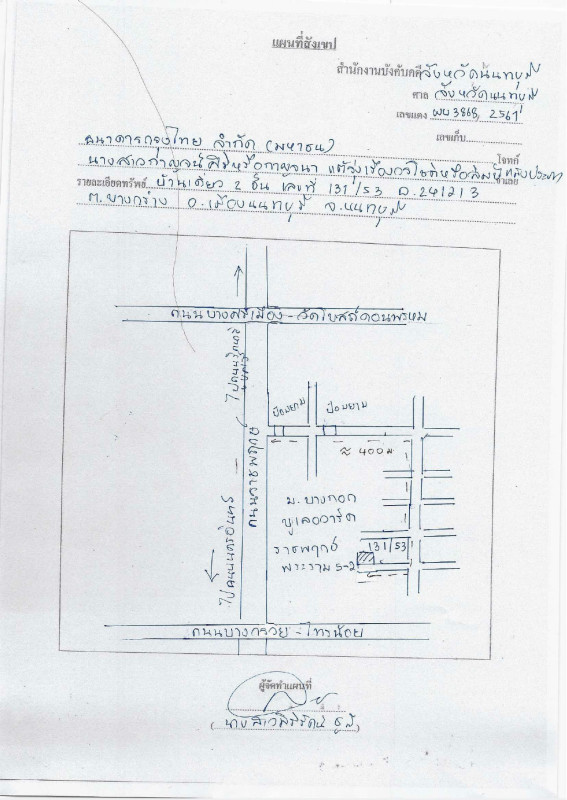 แผนที่สังเขป
สำนักงานบังคับคดีจังหวัดนนทบุรี
ศาล จังหวัดนนทบุรี
เลขแดง ผบ3868, 2561
เลขเก็บ
ธนาคารกรุงไทย จำกัด (มหาชน)
โจทก์
นางสาวกาญจน์สิรีหรือกาญจนา
จำเลย
รายละเอียดทรัพย์ บ้านเดี่ยว 2 ชั้น เลขที่ 131/53 ฉ.241213
ต.บางกร่าง อ.เมืองนนทบุรี จ.นนทบุรี
ถนนบางศรีเมือง-วัดโบสถ์ดอนพรหม
ถนนราชพฤกษ์
ไปถนนนครอินทร์
ป้อมยาม
ป้อมยาม
≈ 400ม
ม. บางกอก
บูเลอวาร์ด
ราชพฤกษ์
พระราม 5-2
131/53
ถนนบางกรวย-ไทรน้อย
ผู้จัดทำแผนที่